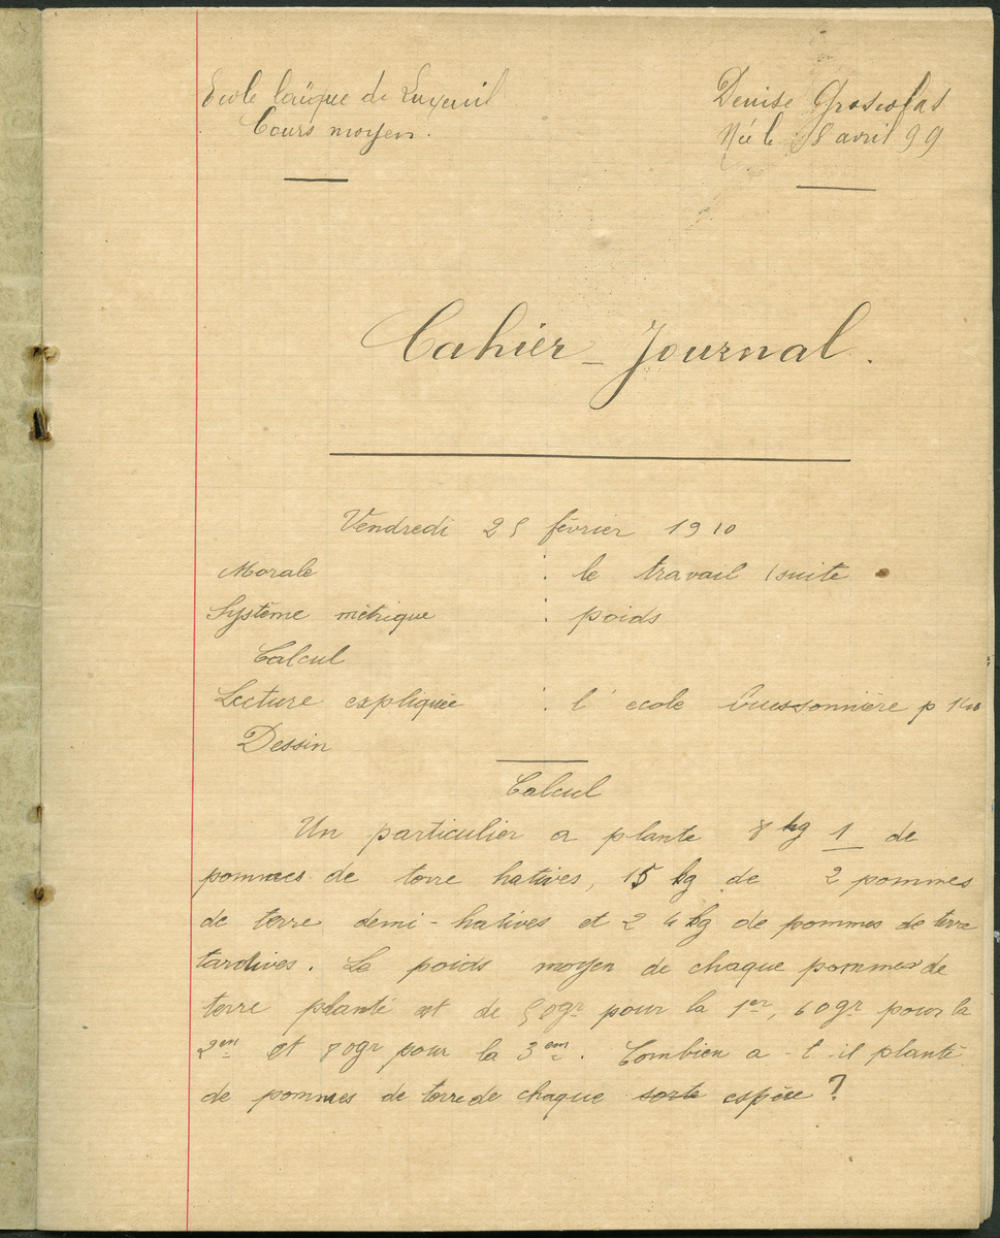 Ecole laïque de Luxeuil
Cours moyen.
Denise Groscolas
Née le 18 avril 99
Cahier-Journal.
Vendredi 25 février 1910
Morale : le travail (suite
Système métrique : poids
Calcul
Lecture expliquée : l'école buissonnière p
Dessin
Calcul
Un particulier a planté 8 kg 1 de
pommes de terre hatives, 15 kg de 2 pommes
de terre demi-hatives et 24 kg de pommes de terre
tardives. Le poids moyen de chaque pommes de
terre planté est de 50gr pour la 1er, 60gr pour la
2em et 80gr pour la 3em. Combien a-t-il planté
de pommes de terre de chaque sorte espèce ?